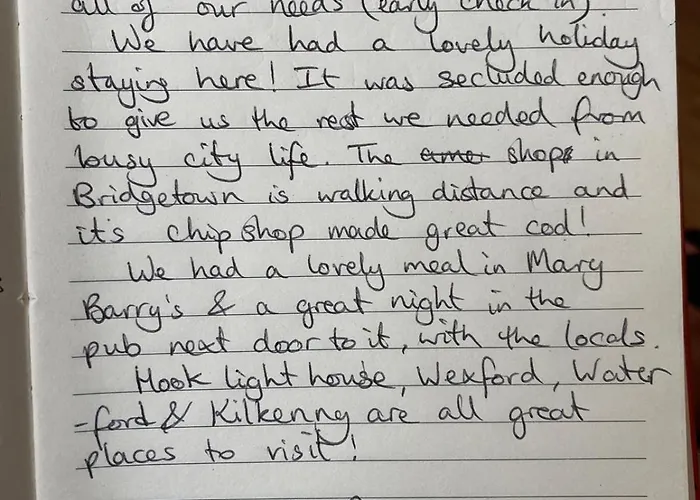 all of our needs (early check in).
We have had a lovely holiday
staying here! It was secluded enough
to give us the rest we needed from
busy city life. The shops in
Bridgetown is walking distance and
it's chip shop made great cod!
We had a lovely meal in Mary
Barry's & a great night in the
pub next door to it, with the locals.
Hook light house, Wexford, Water
-ford & Kilkenny are all great
places to visit!